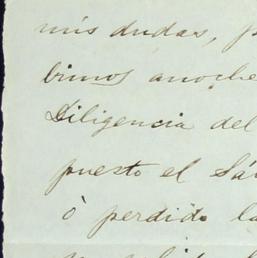 mis dudas, p
bimos anoche
Diligencia del
puesto el Sá
ò perdido la